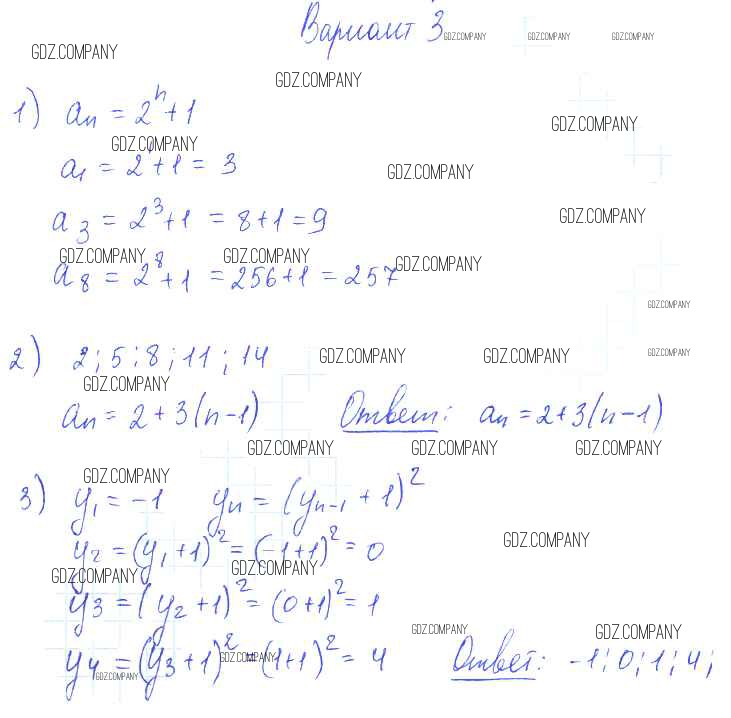 Вариант 3
GDZ.COMPANY GDZ.COMPANY GDZ.COMPANY
GDZ.COMPANY
GDZ.COMPANY
1) aₙ = 2ⁿ + 1
GDZ.COMPANY
GDZ.COMPANY
a₁ = 2¹ + 1 = 3
GDZ.COMPANY
a₃ = 2³ + 1 = 8 + 1 = 9
GDZ.COMPANY
GDZ.COMPANY GDZ.COMPANY GDZ.COMPANY
a₈ = 2⁸ + 1 = 256 + 1 = 257
GDZ.COMPANY
2) 2; 5; 8; 11; 14
GDZ.COMPANY GDZ.COMPANY GDZ.COMPANY
GDZ.COMPANY
aₙ = 2 + 3(n-1) Ответ: aₙ = 2 + 3(n-1)
GDZ.COMPANY GDZ.COMPANY GDZ.COMPANY
GDZ.COMPANY
3) y₁ = -1 yₙ = (yₙ₋₁ + 1)²
GDZ.COMPANY
y₂ = (y₁ + 1)² = (-1+1)² = 0
GDZ.COMPANY GDZ.COMPANY
y₃ = (y₂ + 1)² = (0+1)² = 1
GDZ.COMPANY GDZ.COMPANY
y₄ = (y₃ + 1)² = (1+1)² = 4 Ответ: -1; 0; 1; 4;
GDZ.COMPANY
GDZ.COMPANY